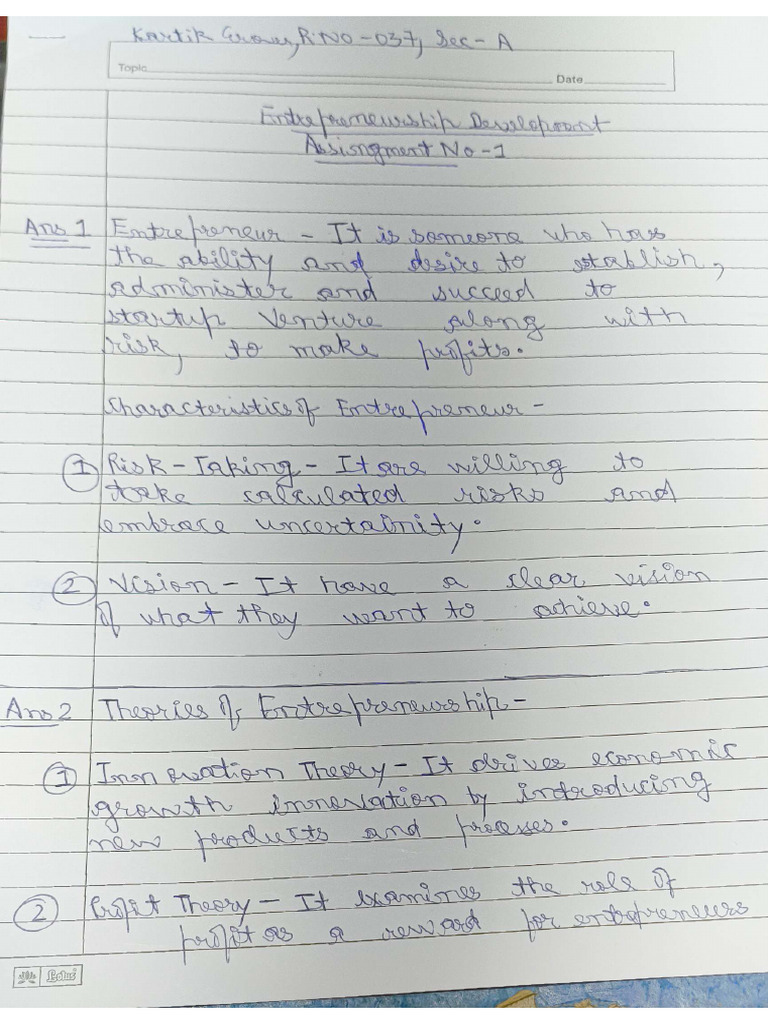 Kartik Grover, R.NO-037, Sec-A
Topic
Date
Entrepreneurship Development
Assisngment No-1
Ans 1 Entrepreneur - It is someone who has
the ability and desire to establish,
administer and succeed to
startup venture along with
risk, to make profits.
Characteristics of Entrepreneur -
① Risk-Taking - It are willing to
take calculated risks and
embrace uncertainity.
② Vision - It have a clear vision
of what they want to achieve.
Ans 2 Theories of Entrepreneurship -
① Innovation Theory - It drives economic
growth innovation by introducing
new products and processes.
② Profit Theory - It examines the role of
profit as a reward for entrepreneurs
Lotus